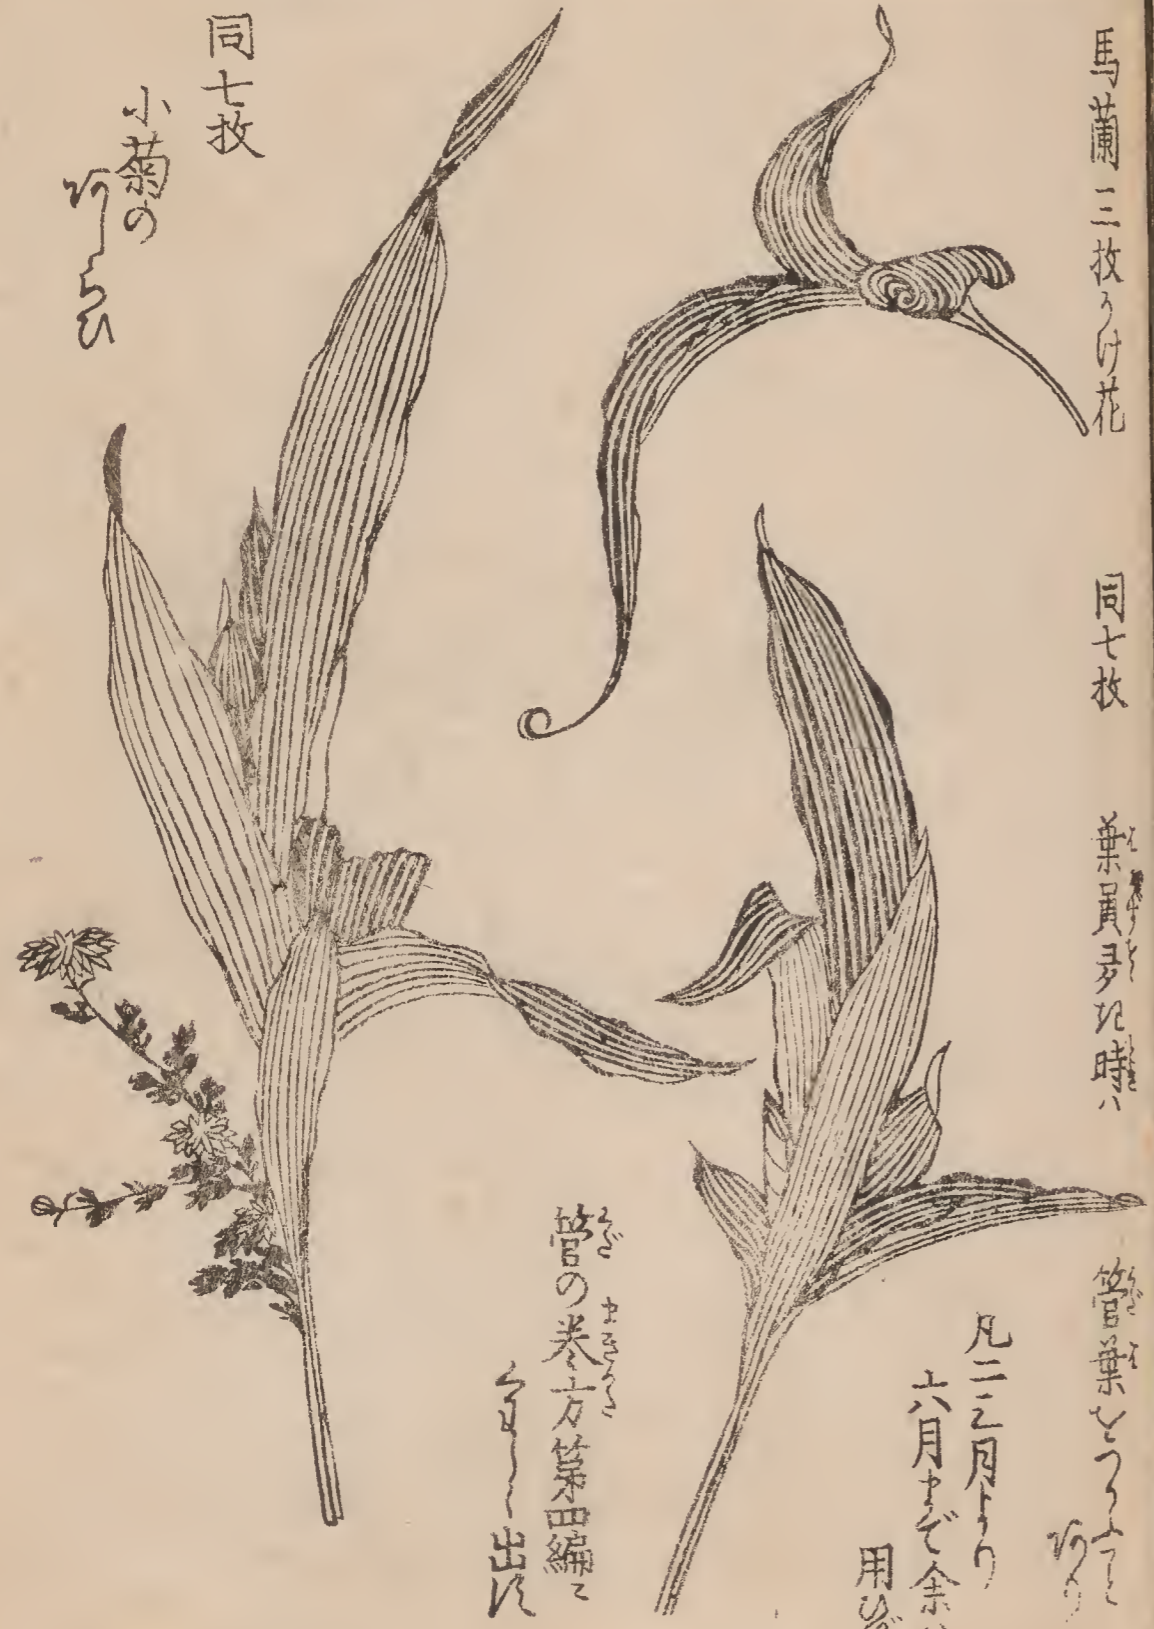 馬蘭三枚かけ花
同七枚
葉員多き時ハ
管葉をつかふこと
あり
凡二三月より
六月まで余
用ひ
管の巻方第四編ニ
くわしく出す
同七枚
小菊の
あしらひ